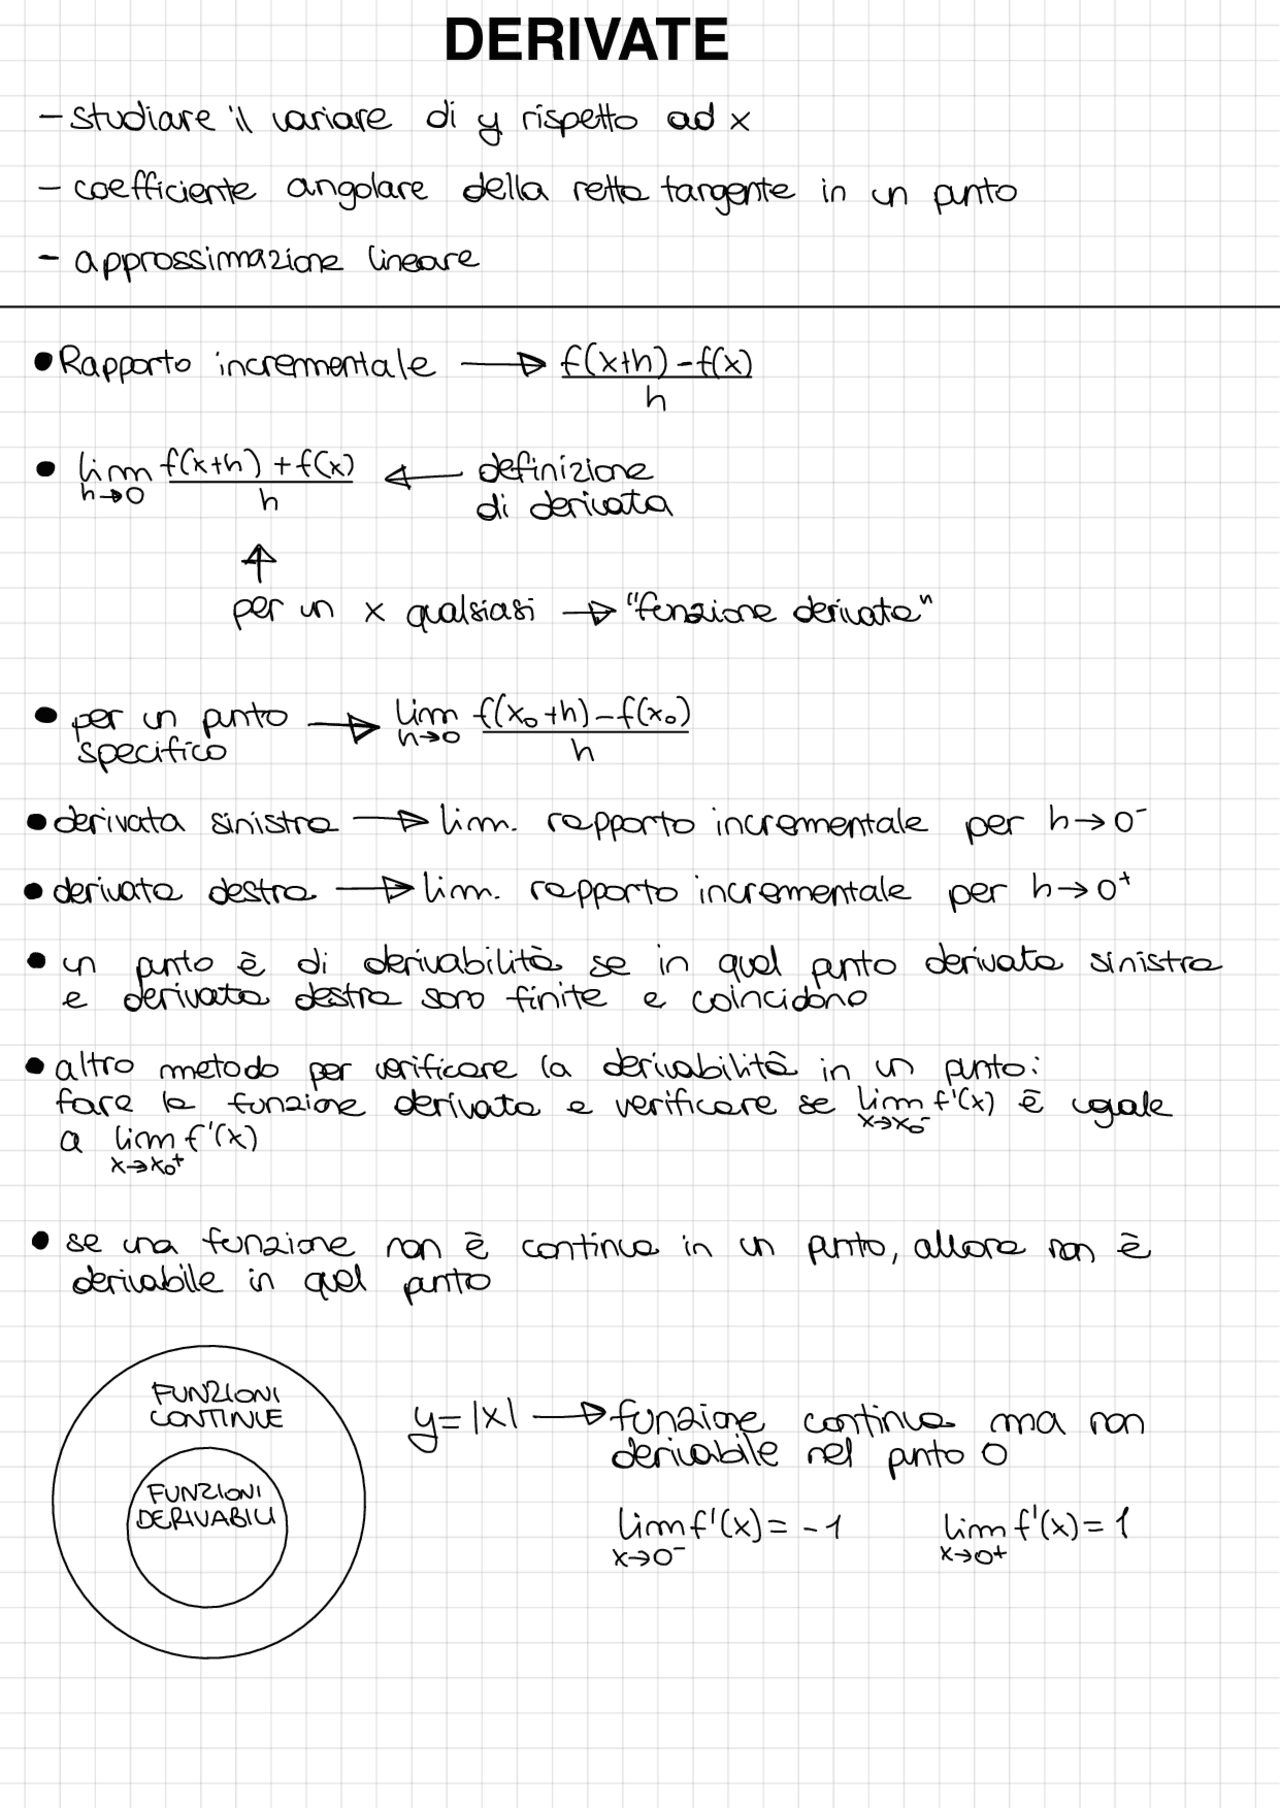 DERIVATE
- studiare il variare di y rispetto ad x
- coefficiente angolare della retta tangente in un punto
- approssimazione lineare
• Rapporto incrementale → f(x+h)-f(x) / h
• lim h→0 f(x+h)+f(x) / h ← definizione
di derivata
↑
per un x qualsiasi → "funzione derivata"
• per un punto → lim h→0 f(x₀+h)-f(x₀) / h
specifico
• derivata sinistra → lim. rapporto incrementale per h→0⁻
• derivata destra → lim. rapporto incrementale per h→0⁺
• un punto è di derivabilità se in quel punto derivata sinistra
e derivata destra sono finite e coincidono
• altro metodo per verificare la derivabilità in un punto:
fare la funzione derivata e verificare se lim x→x₀⁻ f'(x) è uguale
a lim x→x₀⁺ f'(x)
• se una funzione non è continua in un punto, allora non è
derivabile in quel punto
FUNZIONI
CONTINUE
FUNZIONI
DERIVABILI
y=|x| → funzione continua ma non
derivabile nel punto 0
lim x→0⁻ f'(x)= -1 lim x→0⁺ f'(x)= 1